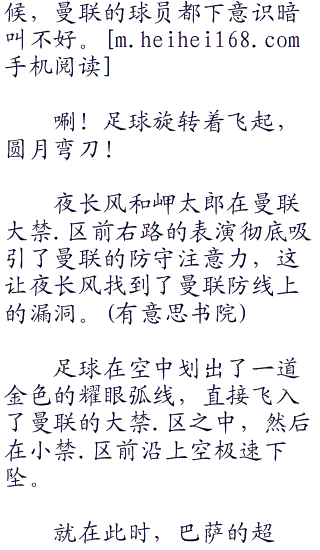 候，曼联的球员都下意识暗
叫不好。[m.heihei168.com
手机阅读]
唰！足球旋转着飞起，
圆月弯刀！
夜长风和岬太郎在曼联
大禁.区前右路的表演彻底吸
引了曼联的防守注意力，这
让夜长风找到了曼联防线上
的漏洞。(有意思书院)
足球在空中划出了一道
金色的耀眼弧线，直接飞入
了曼联的大禁.区之中，然后
在小禁.区前沿上空极速下
坠。
就在此时，巴萨的超